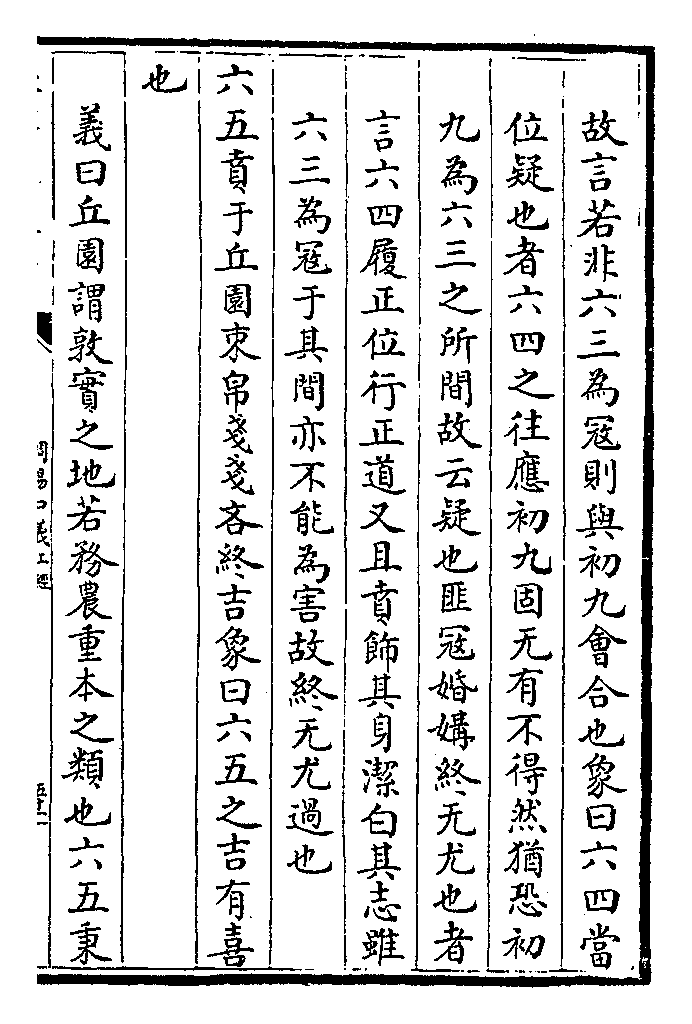 故言若非六三為冦則與初九會合也象曰六四當
位疑也者六四之往應初九固无有不得然猶恐初
九為六三之所間故云疑也匪冦婚媾終无尤也者
言六四履正位行正道又且賁飾其身潔白其志雖
六三為冦于其間亦不能為害故終无尤過也
六五賁于丘園束帛戔戔吝終吉象曰六五之吉有喜
也
義曰丘園謂敦實之地若務農重本之類也六五秉
周易口義上經